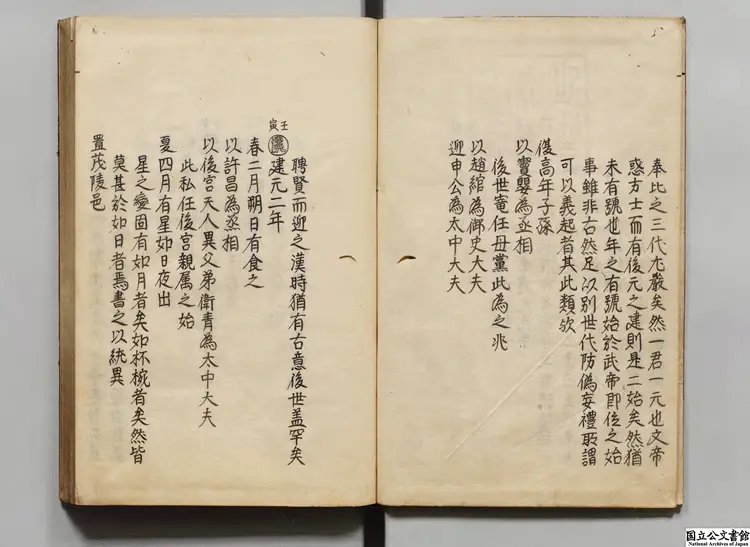 奉比之三代尤嚴矣然一君一元也文帝
惑方士而有後元之建則是二始矣然猶
未有號也年之有號始於武帝即位之始
事雖非古然足以別世代防僞妄禮所謂
可以義起者其此類欤
復高年子孫
以竇嬰為丞相
後世竜任母黨此為之兆
以趙綰為御史大夫
迎申公為太中大夫
聘賢而迎之漢時猶有古意後世盖罕矣
壬寅
漢
建元二年
春二月朔日有食之
以許昌為丞相
以後宮夫人異父弟衛青為太中大夫
此私任後宮親属之始
夏四月有星如日夜出
星之變固有如月者矣如杯椀者矣然皆
莫甚於如日者焉書之以統異
置茂陵邑
国立公文書館
National Archives of Japan